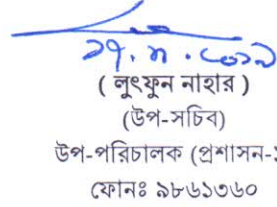 ( লুৎফুন নাহার )
(উপ-সচিব)
উপ-পরিচালক (প্রশাসন-১
ফোনঃ ৯৮৬১৩৬০